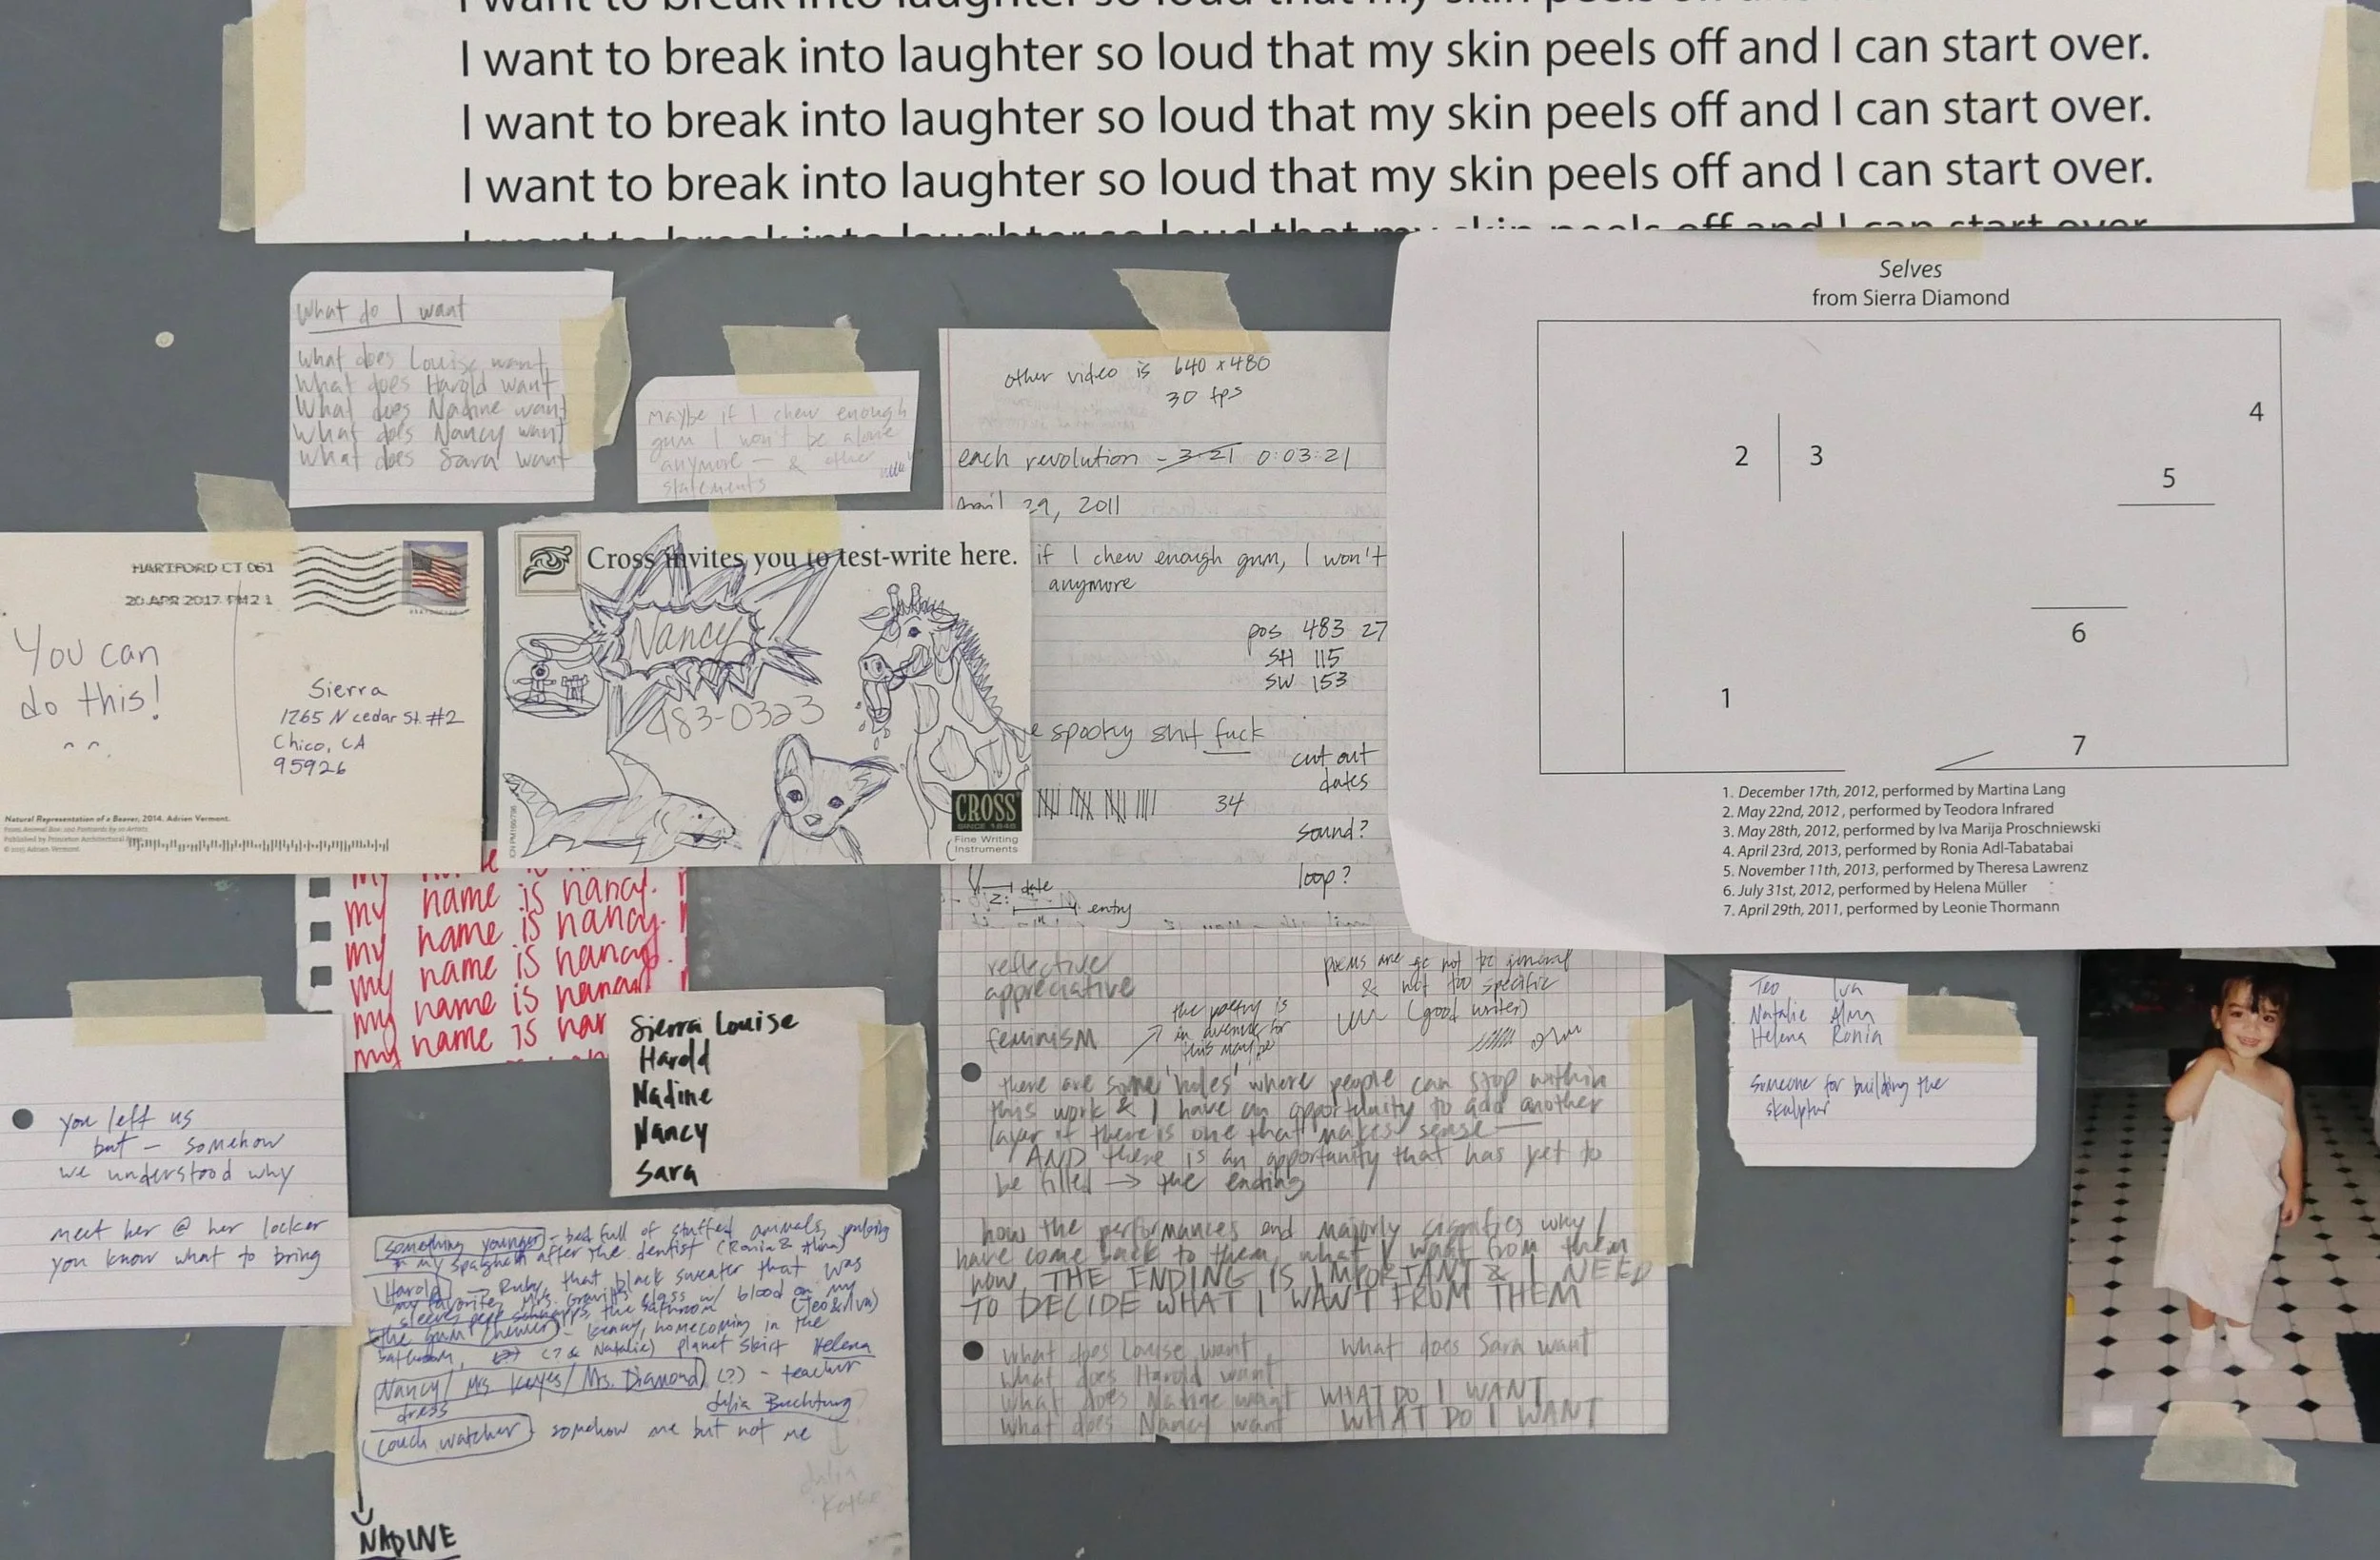 I want to break into laughter so loud that my skin peels off and I
I want to break into laughter so loud that my skin peels off and I can start over.
I want to break into laughter so loud that my skin peels off and I can start over.
I want to break into laughter so loud that my skin peels off and I can start over.
I want to break into laughter so loud that my skin peels off and I can start over.
What do I want
What does Louise want
What does Harold want
What does Nadine want
What does Nancy want
What does Sara want
Maybe if I chew enough
gum I won't be alone
anymore — & other
statements
other video is 640 x 480
30 fps
each revolution - 3:21 0:03:21
April 29, 2011
if I chew enough gum, I won't
anymore
pos 483 27
SH 115
SW 153
spooky shit fuck
cut out
dates
34
sound?
loop?
date
entry
Selves
from Sierra Diamond
4
2 3
5
6
1
7
1. December 17th, 2012, performed by Martina Lang
2. May 22nd, 2012 , performed by Teodora Infrared
3. May 28th, 2012, performed by Iva Marija Proschniewski
4. April 23rd, 2013, performed by Ronia Adl-Tabatabai
5. November 11th, 2013, performed by Theresa Lawrenz
6. July 31st, 2012, performed by Helena Müller
7. April 29th, 2011, performed by Leonie Thormann
HARTFORD CT 061
20 APR 2017 PM 2 1
You can
do this!
Sierra
1265 N cedar St. #2
Chico, CA
95926
Natural Representation of a Beaver, 2014. Adrien Vermont.
From Animal Box: 100 Postcards by 10 Artists
Published by Princeton Architectural Press
© 2015 Adrien Vermont
Cross invites you to test-write here.
Nancy
483-0323
CROSS
SINCE 1846
Fine Writing
Instruments
my name is nancy.
my name is nancy.
my name is nancy.
my name is nancy
my name is nan
Sierra Louise
Harold
Nadine
Nancy
Sara
you left us
but — somehow
we understood why
meet her @ her locker
you know what to bring
something younger - bed full of stuffed animals, puking
in my spaghetti after the dentist (Ronia & Alma)
Harold → Ruby, that black sweater that was
my favorite, Mrs. Gravitt's class w/ blood on my
sleeves, the bathroom (Teo & Iva)
the gum chewer - Kenny, homecoming in the
bathroom, (? & Natalie) planet skirt Helena
Nancy / Mrs Keyes / Ms. Diamond (?) - teacher
dress Julia Buchtung
couch watcher somehow me but not me
NADINE
reflective
appreciative
feminism
the poetry is
poems are
& not too specific
(good writer)
there are some 'holes' where people can stop within
this work & I have an opportunity to add another
layer if there is one that makes sense —
AND there is an opportunity that has yet to
be filled → the ending
how the performances end majorly signifies why I
have come back to them, what I want from them
now, THE ENDING IS IMPORTANT & I NEED
TO DECIDE WHAT I WANT FROM THEM
What does Louise want What does Sara want
What does Harold want
What does Nadine want WHAT DO I WANT
What does Nancy want WHAT DO I WANT
Teo Iva
Natalie Alma
Helena Ronia
Someone for building the
skulptur